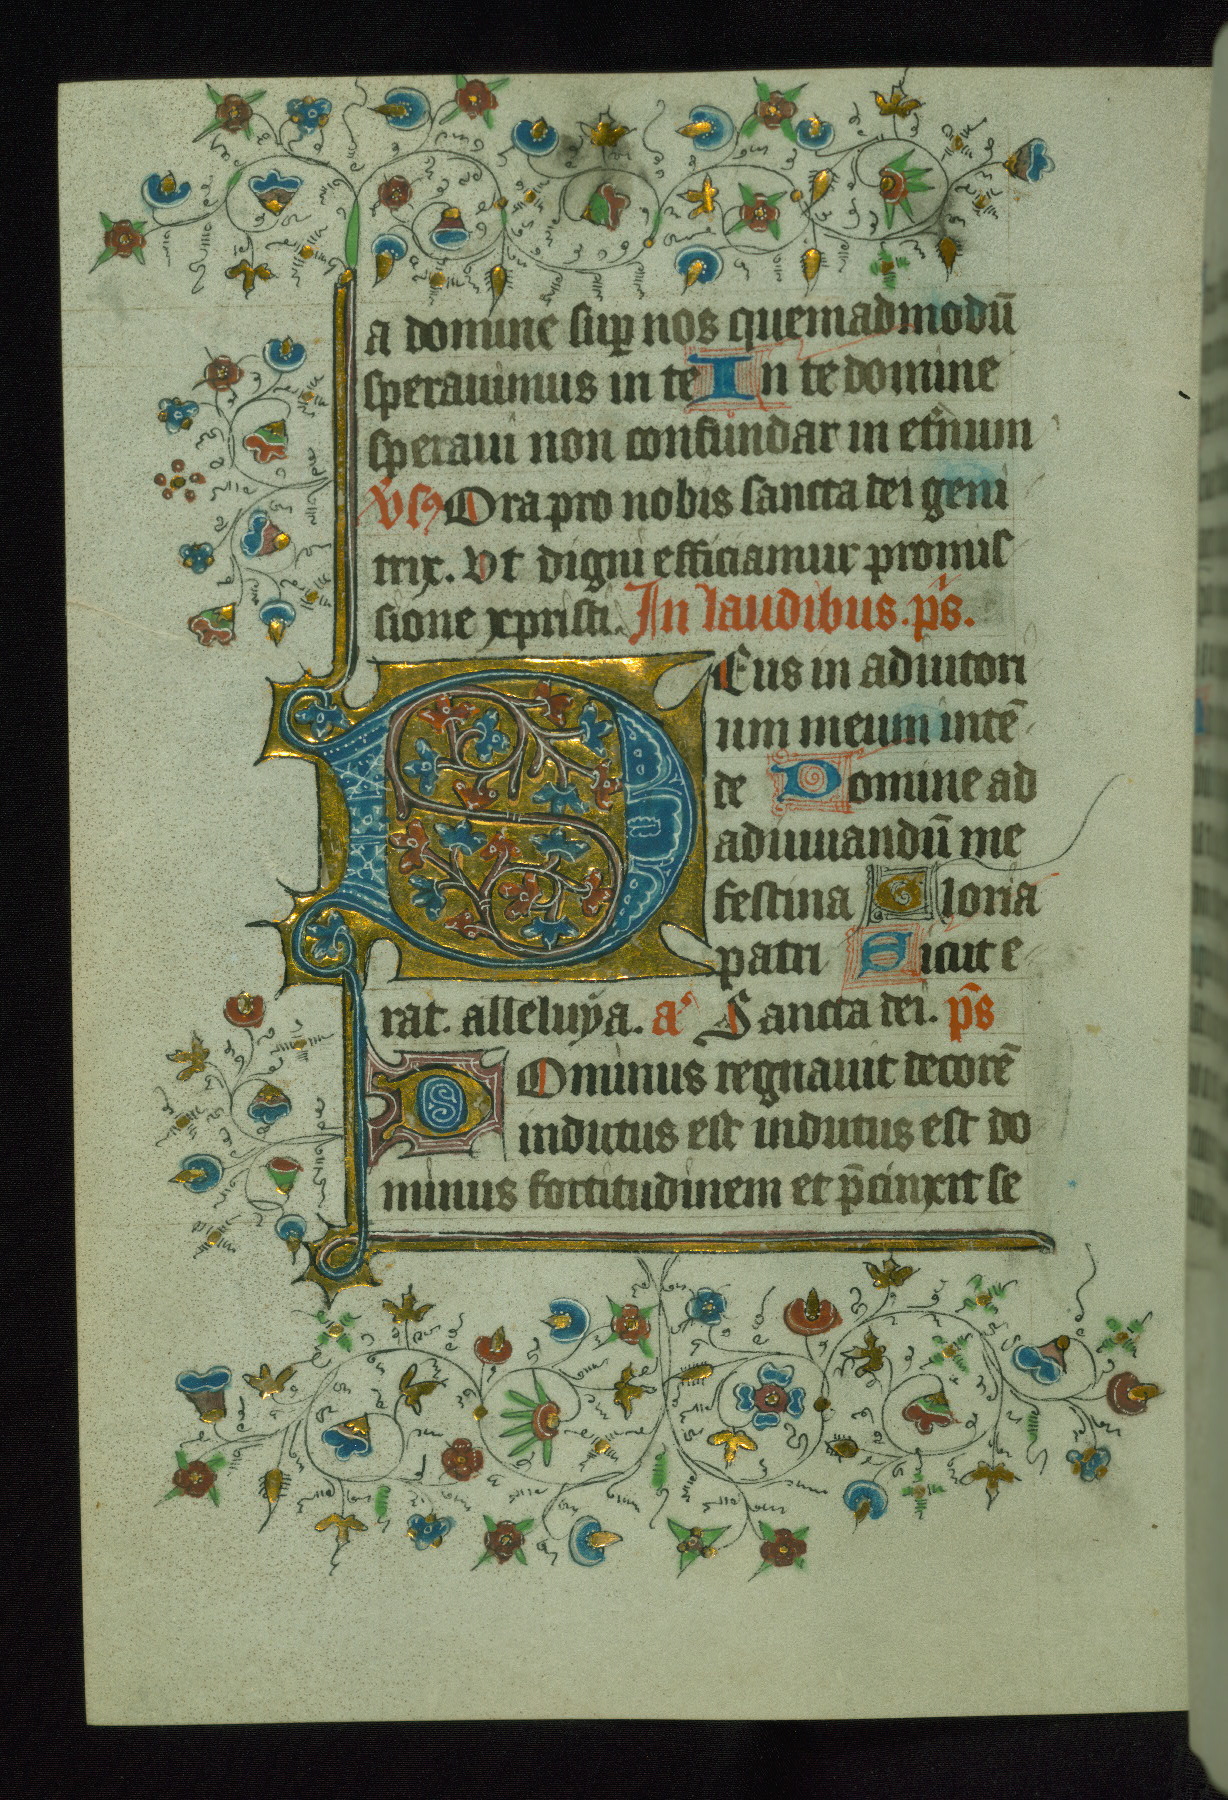 a domine sup nos quemadmodū
sperauimus in te In te domine
speraui non confundar in et'num
v̄sꝰ Ora pro nobis sancta dei geni
trix. Vt digni efficiamur promis
sione xpristi. In laudibus. p̄s.
Eus in adiutori
um meum intē
de Domine ad
adiuuandū me
festina Gloria
patri Sicut e
rat. alleluÿa. aᵃ Sancta dei. p̄s
Dominus regnauit decorē
indutus est indutus est do
minus fortitudinem et p̄cinxit se